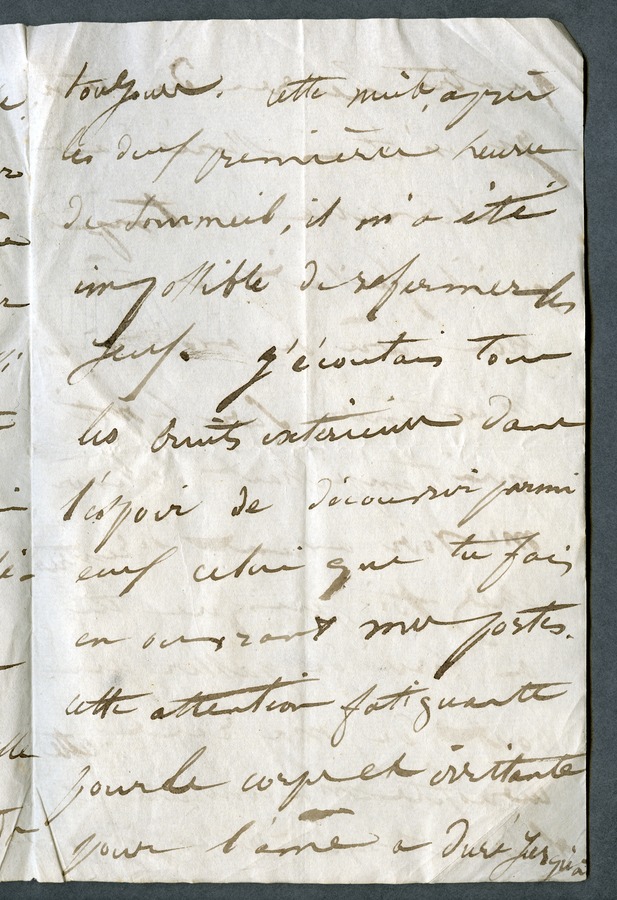 toujours. cette nuit, après
les deux premières heures
de sommeil, il m'a été
impossible de refermer les
yeux. j'écoutais tous
les bruits extérieurs dans
l'espoir de découvrir parmi
eux celui que tu fais
en ouvrant mes portes.
cette attention fatiguante
pour le corps et irritante
pour l'âme a duré jusqu'à